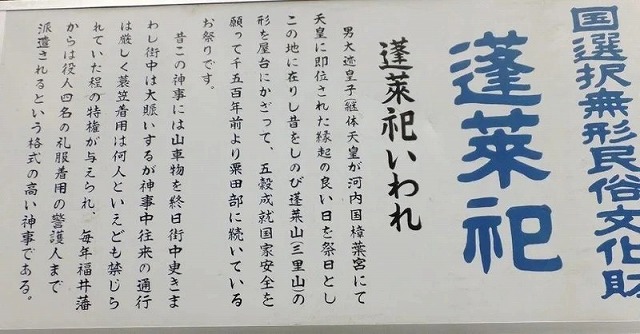 国選択無形民俗文化財
蓬莱祀
蓬莱祀いわれ
男大迹皇子(継体天皇が河内国樟葉宮にて
天皇に即位された縁起の良い日を祭日とし
この地に在りし昔をしのび蓬莱山(三里山)の
形を屋台にかざって、五穀成就国家安全を
願って千五百年前より粟田部に続いている
お祭りです。
昔この神事には山車物を終日街中曳きま
わし街中は大賑いするが神事中往来の通行
は厳しく蓑笠着用は何人といえども禁じら
れていた程の特権が与えられ、毎年福井藩
からは役人四名の礼服着用の警護人まで
派遣されるという格式の高い神事である。